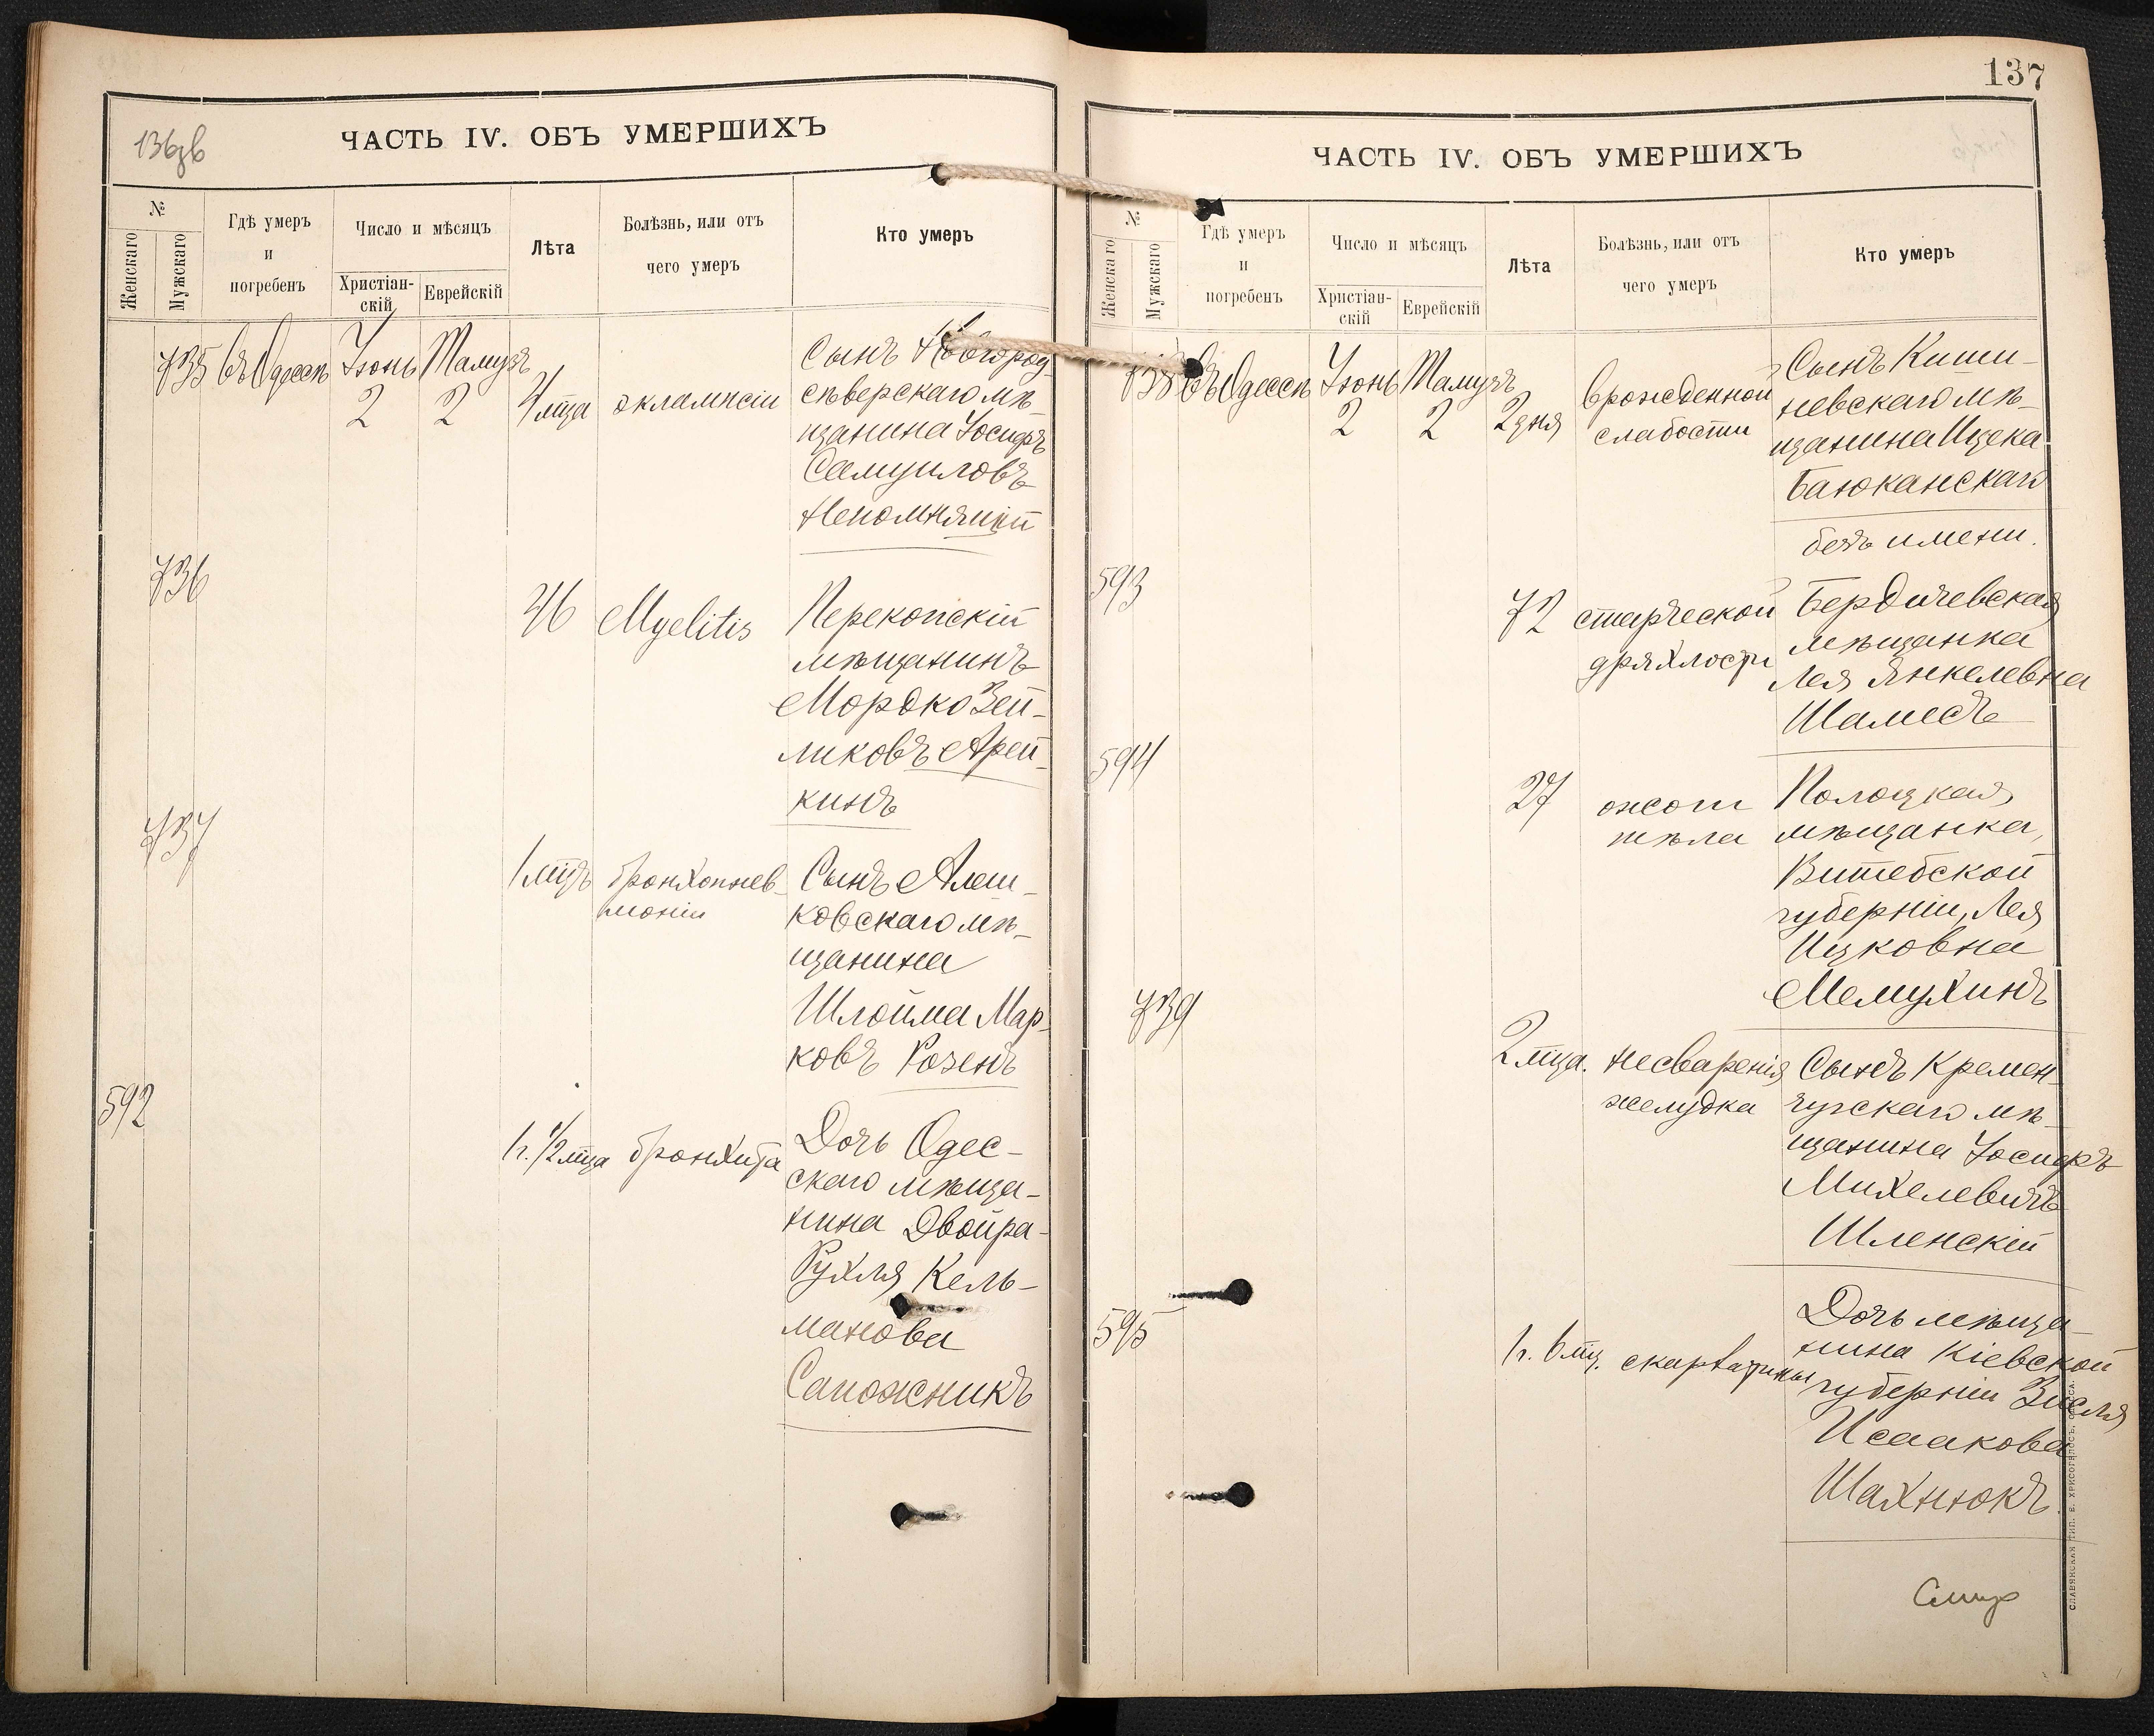 136зв
ЧАСТЬ IV. ОБЪ УМЕРШИХЪ
№
Женскаго
Мужскаго
Гдѣ умеръ
и
погребенъ
Число и мѣсяцъ
Христіан-
скій
Еврейскій
Лѣта
Болѣзнь, или отъ
чего умеръ
Кто умеръ
735 въ Одессѣ Іюнь Тамузъ
2 2 4 мца эклампсіи
Сынъ Новгород
сѣверскаго мѣ-
щанина Іосифъ
Самуиловъ
Непомнящій
736
46 Myelitis
Перекопскій
мѣщанинъ
Мордко Зей-
ликовъ Арей-
кинъ
737
1 мцъ бронхопнев-
моніи
Сынъ Алеш-
ковскаго мѣ-
щанина
Шлойма Мар-
ковъ Розенъ
592
1 г. 1/2 мца бронхита
Дочь Одес-
скаго мѣща-
нина Двойра-
Рухля Кель-
манова
Сапожникъ
137
ЧАСТЬ IV. ОБЪ УМЕРШИХЪ
№
Женскаго
Мужскаго
Гдѣ умеръ
и
погребенъ
Число и мѣсяцъ
Христіан-
скій
Еврейскій
Лѣта
Болѣзнь, или отъ
чего умеръ
Кто умеръ
738 въ Одессѣ Іюнь Тамузъ
2 2 2 дня
врожденной
слабости
Сынъ Киши-
невскаго мѣ-
щанина Ицека
Баюканскаго
безъ имени.
593
72 старческой
дряхлости
Бердичевская
мѣщанка
Лея Янкелевна
Шамесъ
594
27 ожоги
тѣла
Полоцкая
мѣщанка,
Витебской
губерніи, Лея
Ицковна
Мемухинъ
739
2 мца. несваренія
желудка
Сынъ Кремен-
чугскаго мѣ-
щанина Іосифъ
Михелевичъ
Шленскій
595
1 г. 6 мц. скарлатины
Дочь мѣща-
нина Кіевской
губерніи Зисля
Исаакова
Шахнюкъ
СЛАВЯНСКАЯ ТИП. Е. ХРИСОГЕЛОСЪ, ОДЕССА.